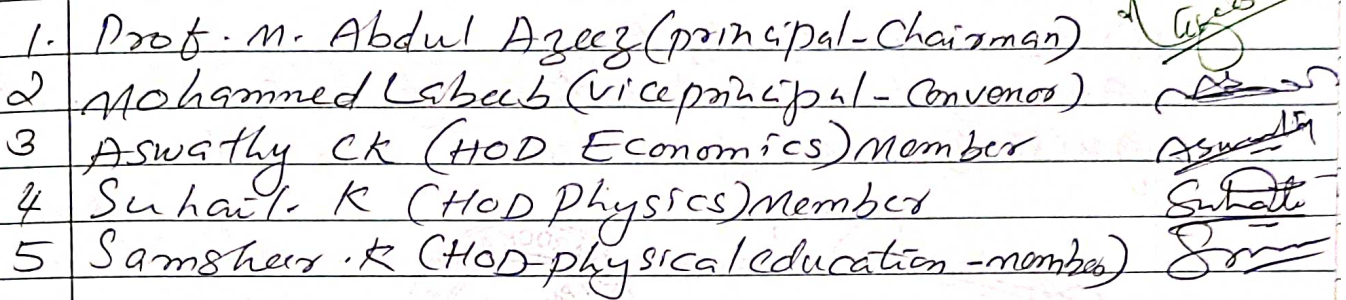 1. Prof. M. Abdul Azeez (principal - Chairman)
2 Mohammed Labeeb (vice principal - Convenor)
3 Aswathy CK (HOD Economics) Member Aswathy
4 Suhail. K (HOD Physics) Member
5 Samsheer . K (HOD - physical education - member)